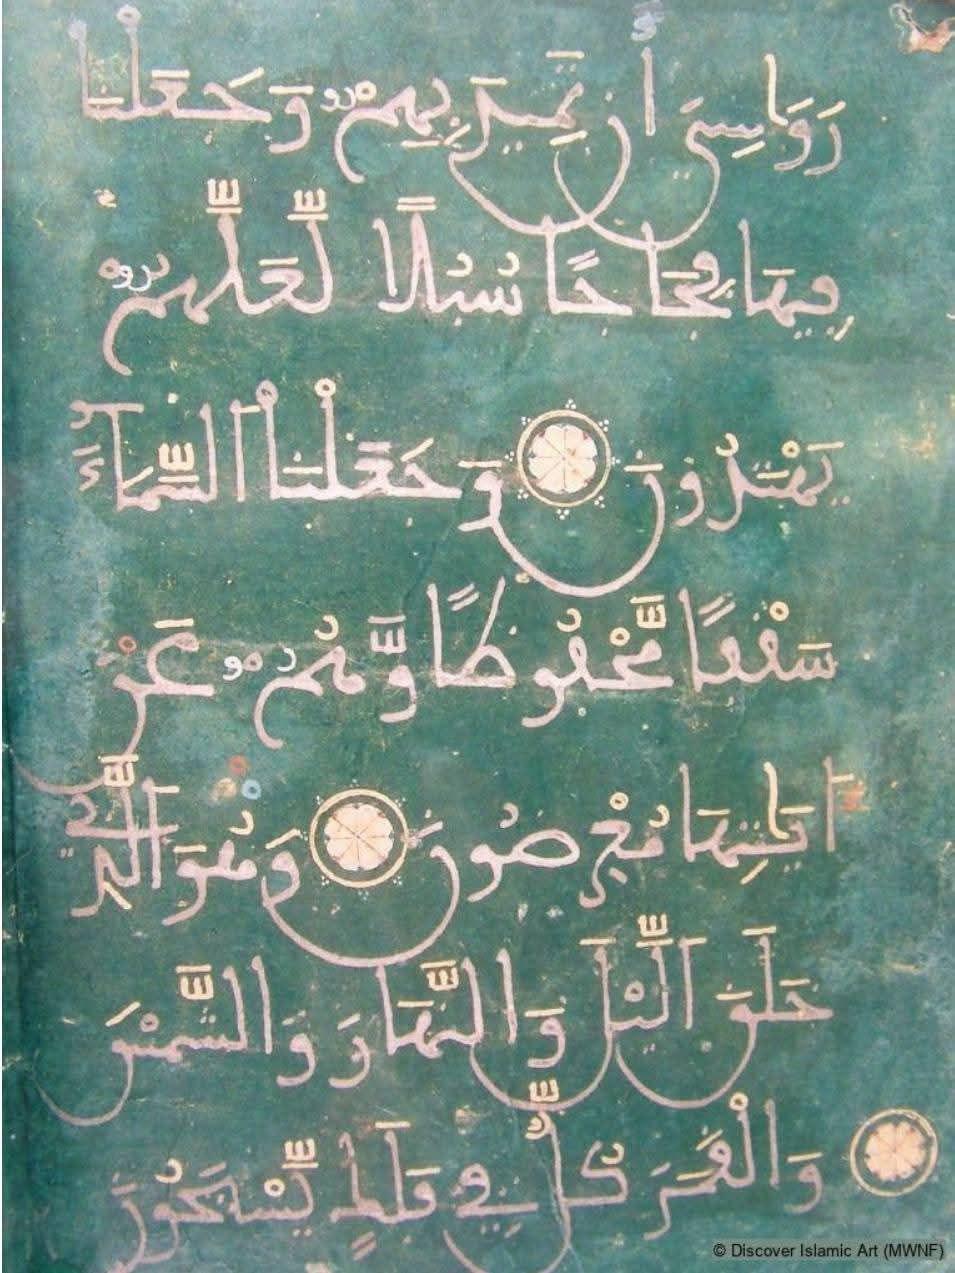 رَوَاسِيَ أَن تَمِيدَ بِهِمْ وَجَعَلْنَا
فِيهَا فِجَاجًا سُبُلًا لَّعَلَّهُمْ
يَهْتَدُونَ وَجَعَلْنَا السَّمَآءَ
سَقْفًا مَّحْفُوظًا وَّهُمْ عَنْ
ءَايَٰتِهَا مُعْرِضُونَ وَهُوَ الَّذِي
خَلَقَ الَّيْلَ وَالنَّهَارَ وَالشَّمْسَ
وَالْقَمَرَ كُلٌّ فِي فَلَكٍ يَّسْبَحُونَ
© Discover Islamic Art (MWNF)